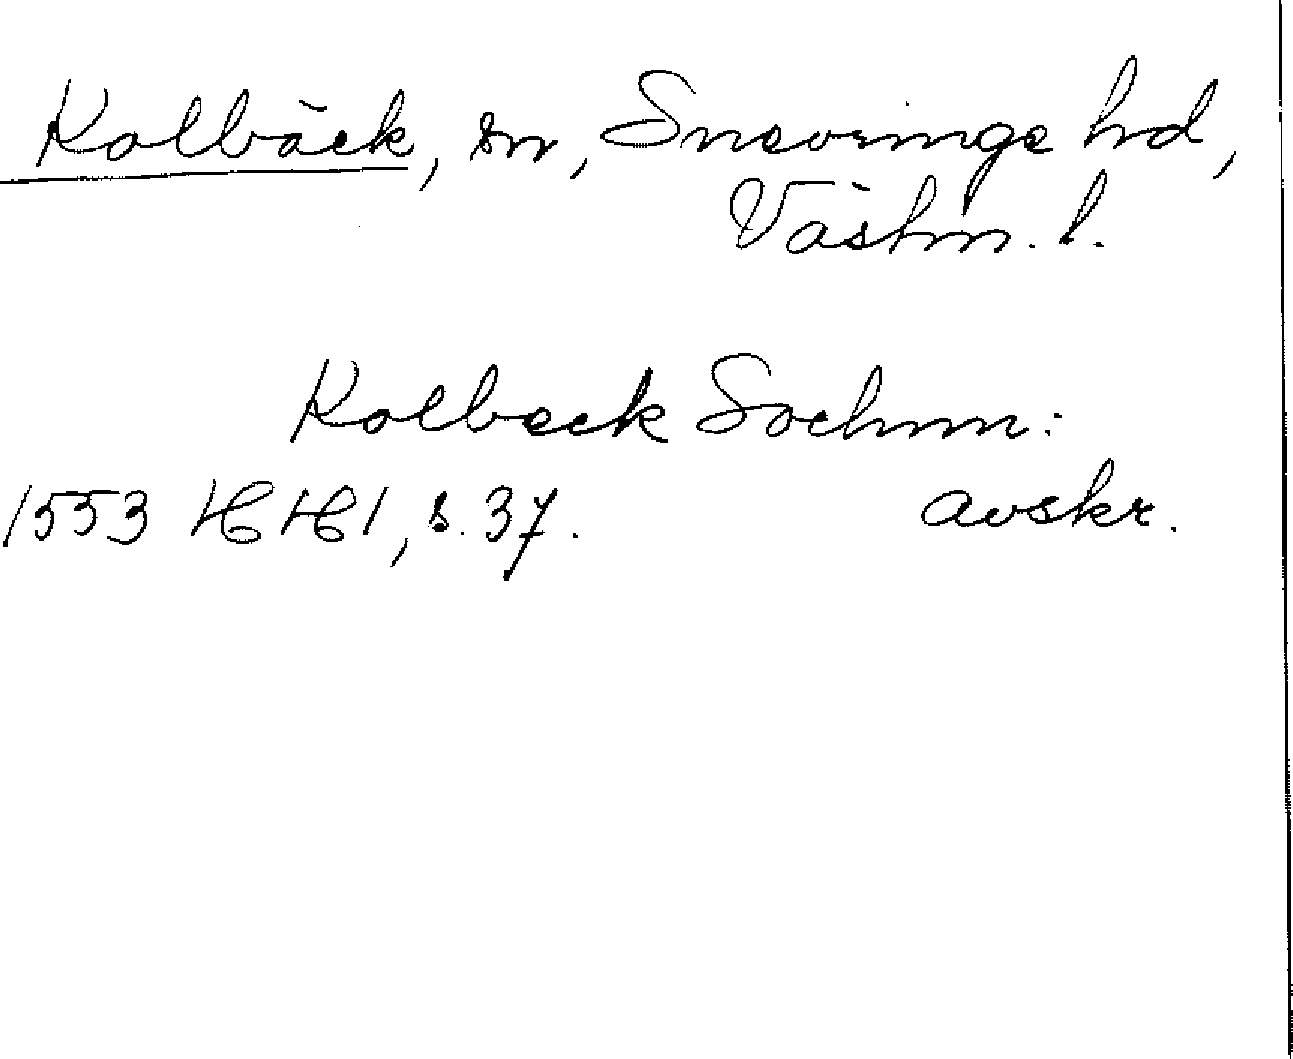 Kolbäck, sn, Snevringe hd,
Västm. l.
Kolbeck Sochnn:
1553 HH1, s. 37. avskr.